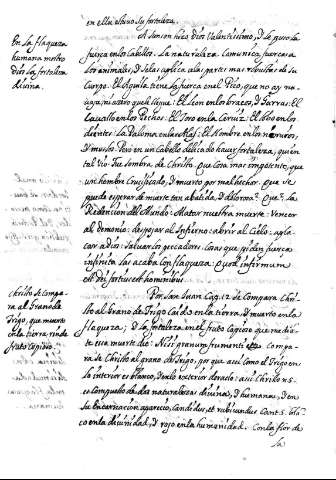 en ella estuvo su fortaleza.
A Sanson hizo dios Valentissimo, y le puso la
fuerza en los Cabellos. La naturaleza Comunica fuerzas a
los animales, y selas aplica alas partes mas robustas de su
Cuerpo. El Aguila tiene la fuerza en el Pico, que no ay na-
El Leon en los brazos, y Garras. El
Cavallo en los Pechos. El Toro en la Cerviz. El lobo en los
dientes. La Paloma en las Alas. El Hombre en los
y muslos. Pero en un Cabello dificil de haver fortaleza, quien
tal vio? fue sombra de Christo. Que Cosa mas Congojante, que
un hombre Crucificado, y muerto por malhechor. Que se
puede esperar de muerte tan abatida, y dolorosa? Que? la
Redencion del Mundo. Matar nuestra muerte. Vencer
al demonio. despojar el Infierno. abrir el Cielo. apla-
car a dios. Salvar los peccadores. Cosas que piden fuerzas
infinitas las acaba con flaqueza. Quod infirmum
est Dei fortius est hominibus.
En la flaqueza
humana mostro
dios la fortaleza
divina.
Por San Juan Cap. 12 se Compara Chris-
to al Grano de Trigo Caido en la tierra, y muerto en la
flaqueza; y la fortaleza en el fruto Copioso que medi-
te esa muerte dio. Nisi granum frumenti etc. Compa-
ra de Christo al grano de Trigo, por que asi como el Trigo en
lo interior es blanco, y en lo exterior dorado: asi Christo es
Compuesto de dos naturalezas divina, y humana, y en
su Encarnacion aparecio, Candidus, et rubicundus Cant. 5. blan-
co en la divinidad, y rojo en la humanidad. Con la flor de
la
Christo se Compa-
ra al Grano de
Trigo, que muerto
en la tierra rinde
fruto Copioso.